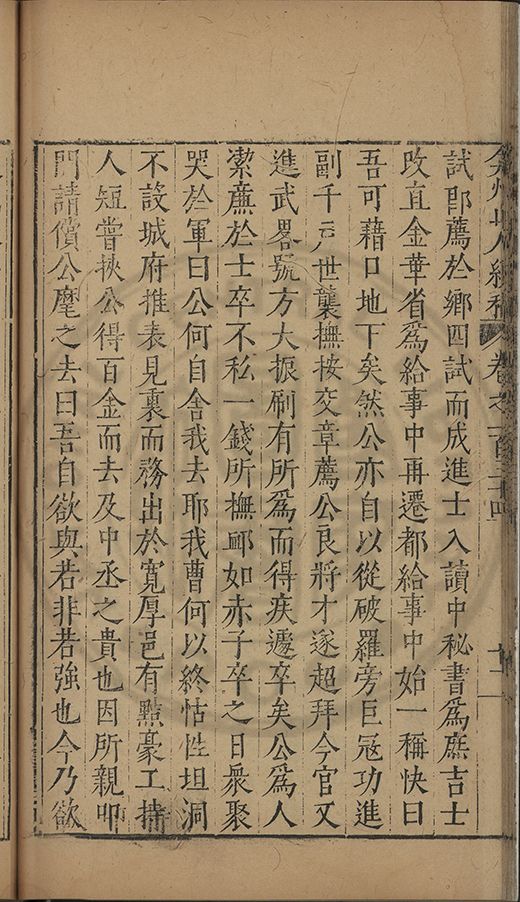 弇州山人續稿 卷之一百三十四 十一
試即薦於鄉四試而成進士入讀中秘書爲庶吉士
改直金華省爲給事中再遷都給事中始一稱快曰
吾可藉口地下矣然公亦自以從破羅旁巨寇功進
副千戶世襲撫按交章薦公良將才逐超拜今官又
進武畧號方大振刷有所爲而得疾遽卒矣公爲人
潔廉於士卒不私一錢所撫䘏如赤子卒之日衆聚
哭於軍曰公何自舍我去耶我曹何以終怙性坦洞
不設城府推表見裏而務出於寬厚邑有黠豪工持
人短嘗挾公得百金而去及中丞之貴也因所親叩
門請償公麾之去曰吾自欲與若非若強也今乃欲